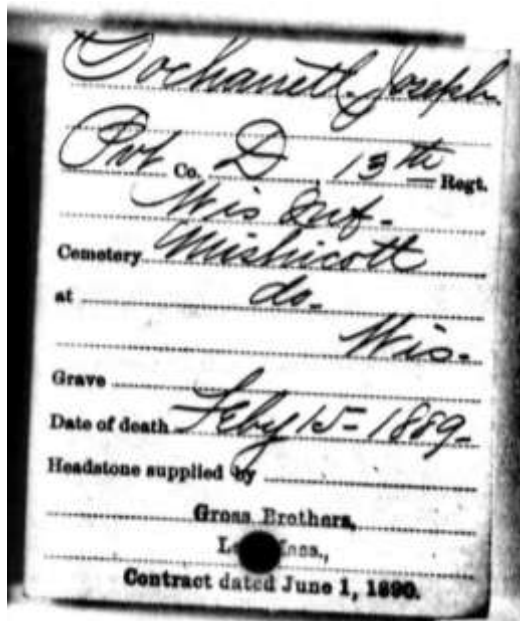 Joseph.
Pvt Co. D, 13th Regt.
Wis Inf.
Cemetery Mishicott
at do.
Wis.
Grave
Date of death Feby 15 - 1889.
Headstone supplied by
Gross Brothers,
Contract dated June 1, 1890.